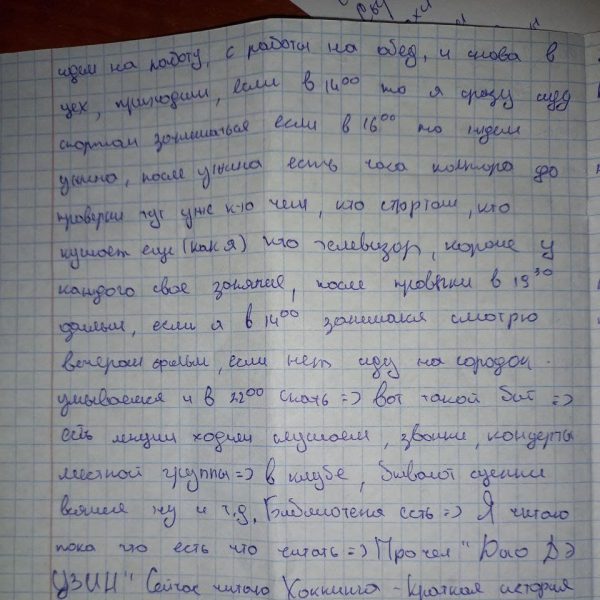 идем на работу, с работы на обед, и снова в
цех, приходим, если в 14⁰⁰ то я сразу иду
спортом заниматься если в 16⁰⁰ то ждем
ужина, после ужина есть часа полтора до
проверки тут уже кто чем, кто спортом, кто
кушает еще (как я) кто телевизор, короче у
каждого свое занятие, после проверки в 19³⁰
если я в 14⁰⁰ занимался смотрю
вечером фильм, если нет иду на городок.
умываемся и в 22⁰⁰ спать =) вот такой быт =)
есть лекции ходим слушаем, звонки, концерты
местной группы =) в клубе, бывают сценки
всякие ну и т.д. Библиотека есть =) Я читаю
пока что есть что читать =) Прочел "Дао Дэ
ЦЗИН" Сейчас читаю Хоккинга - Краткая история